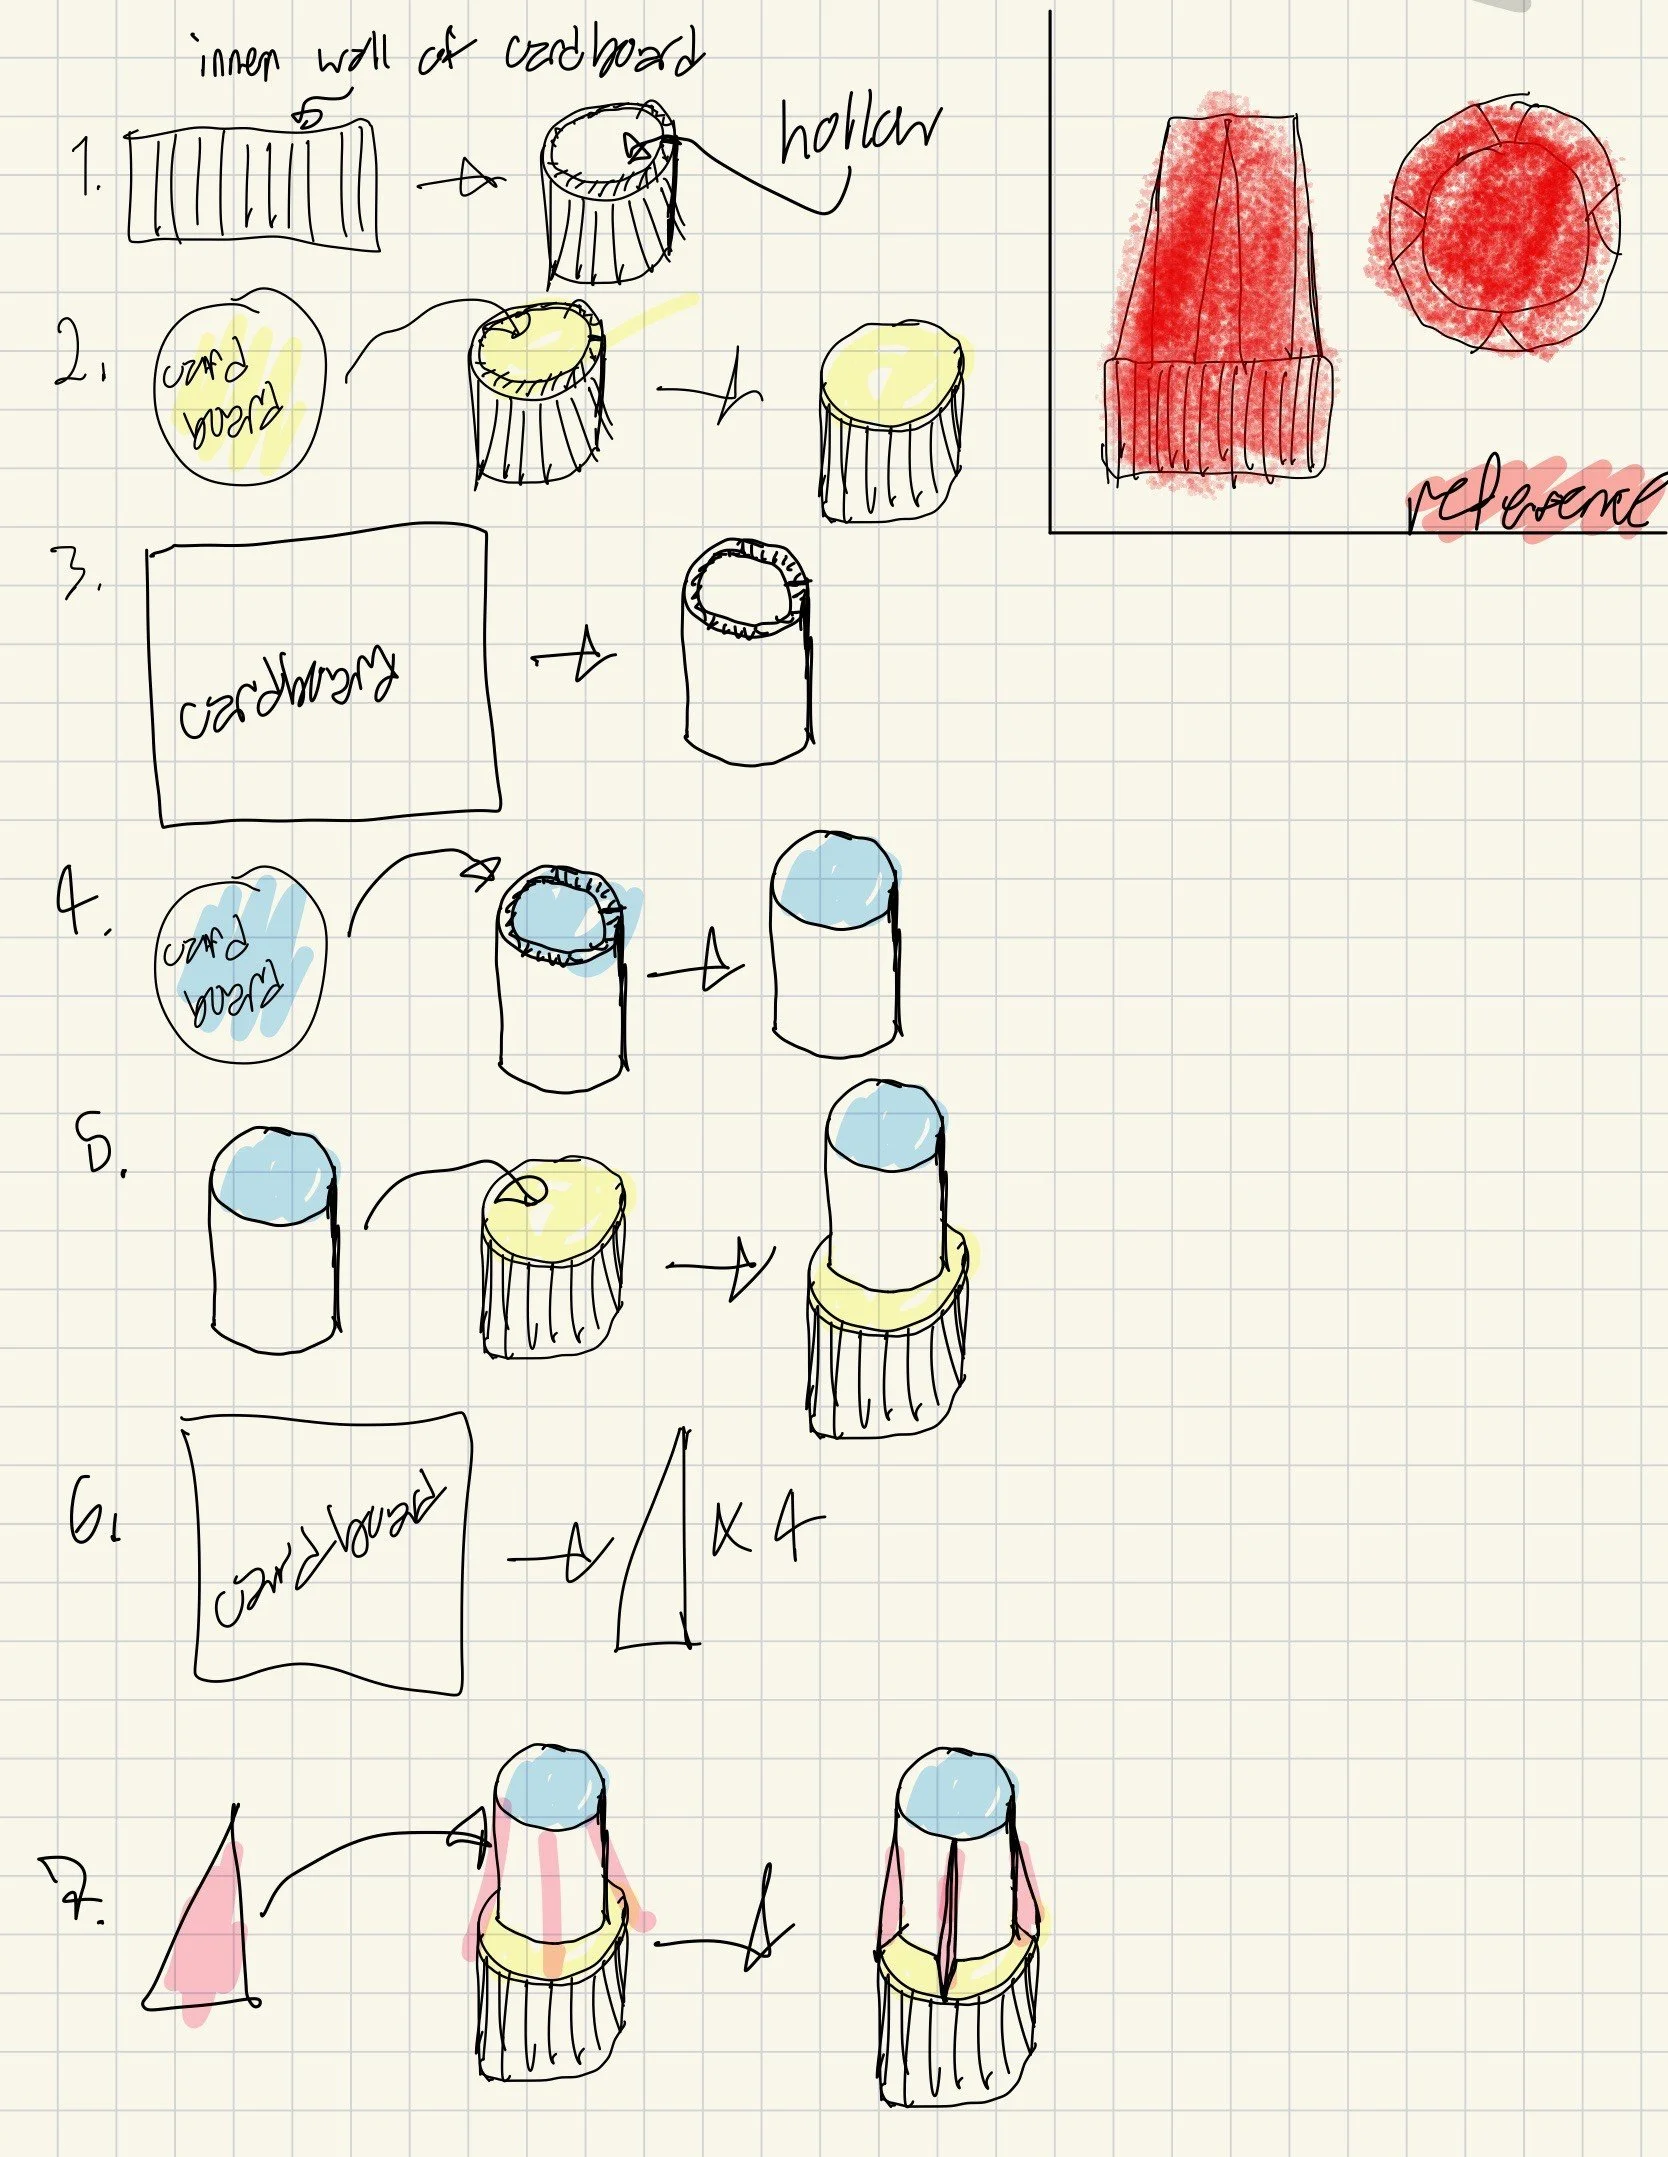 inner wall of cardboard
1.
hollow
2.
card
board
reference
3.
cardboard
4.
card
board
5.
6.
cardboard
x 4
7.